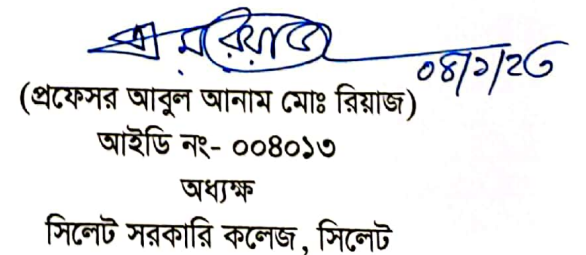 ০৪/১/২৩
(প্রফেসর আবুল আনাম মোঃ রিয়াজ)
আইডি নং- ০০৪০১৩
অধ্যক্ষ
সিলেট সরকারি কলেজ, সিলেট